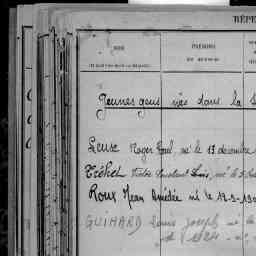 RÉPE
NOM
PRÉNOMS
Jeunes gens nés dans la
Leuse Roger Paul, né le 13 décembre
Tréhel Victor Constant Louis, né le
Roux Jean Amédée né le 17-9-19
GUIHARD Louis Joseph né le
1924